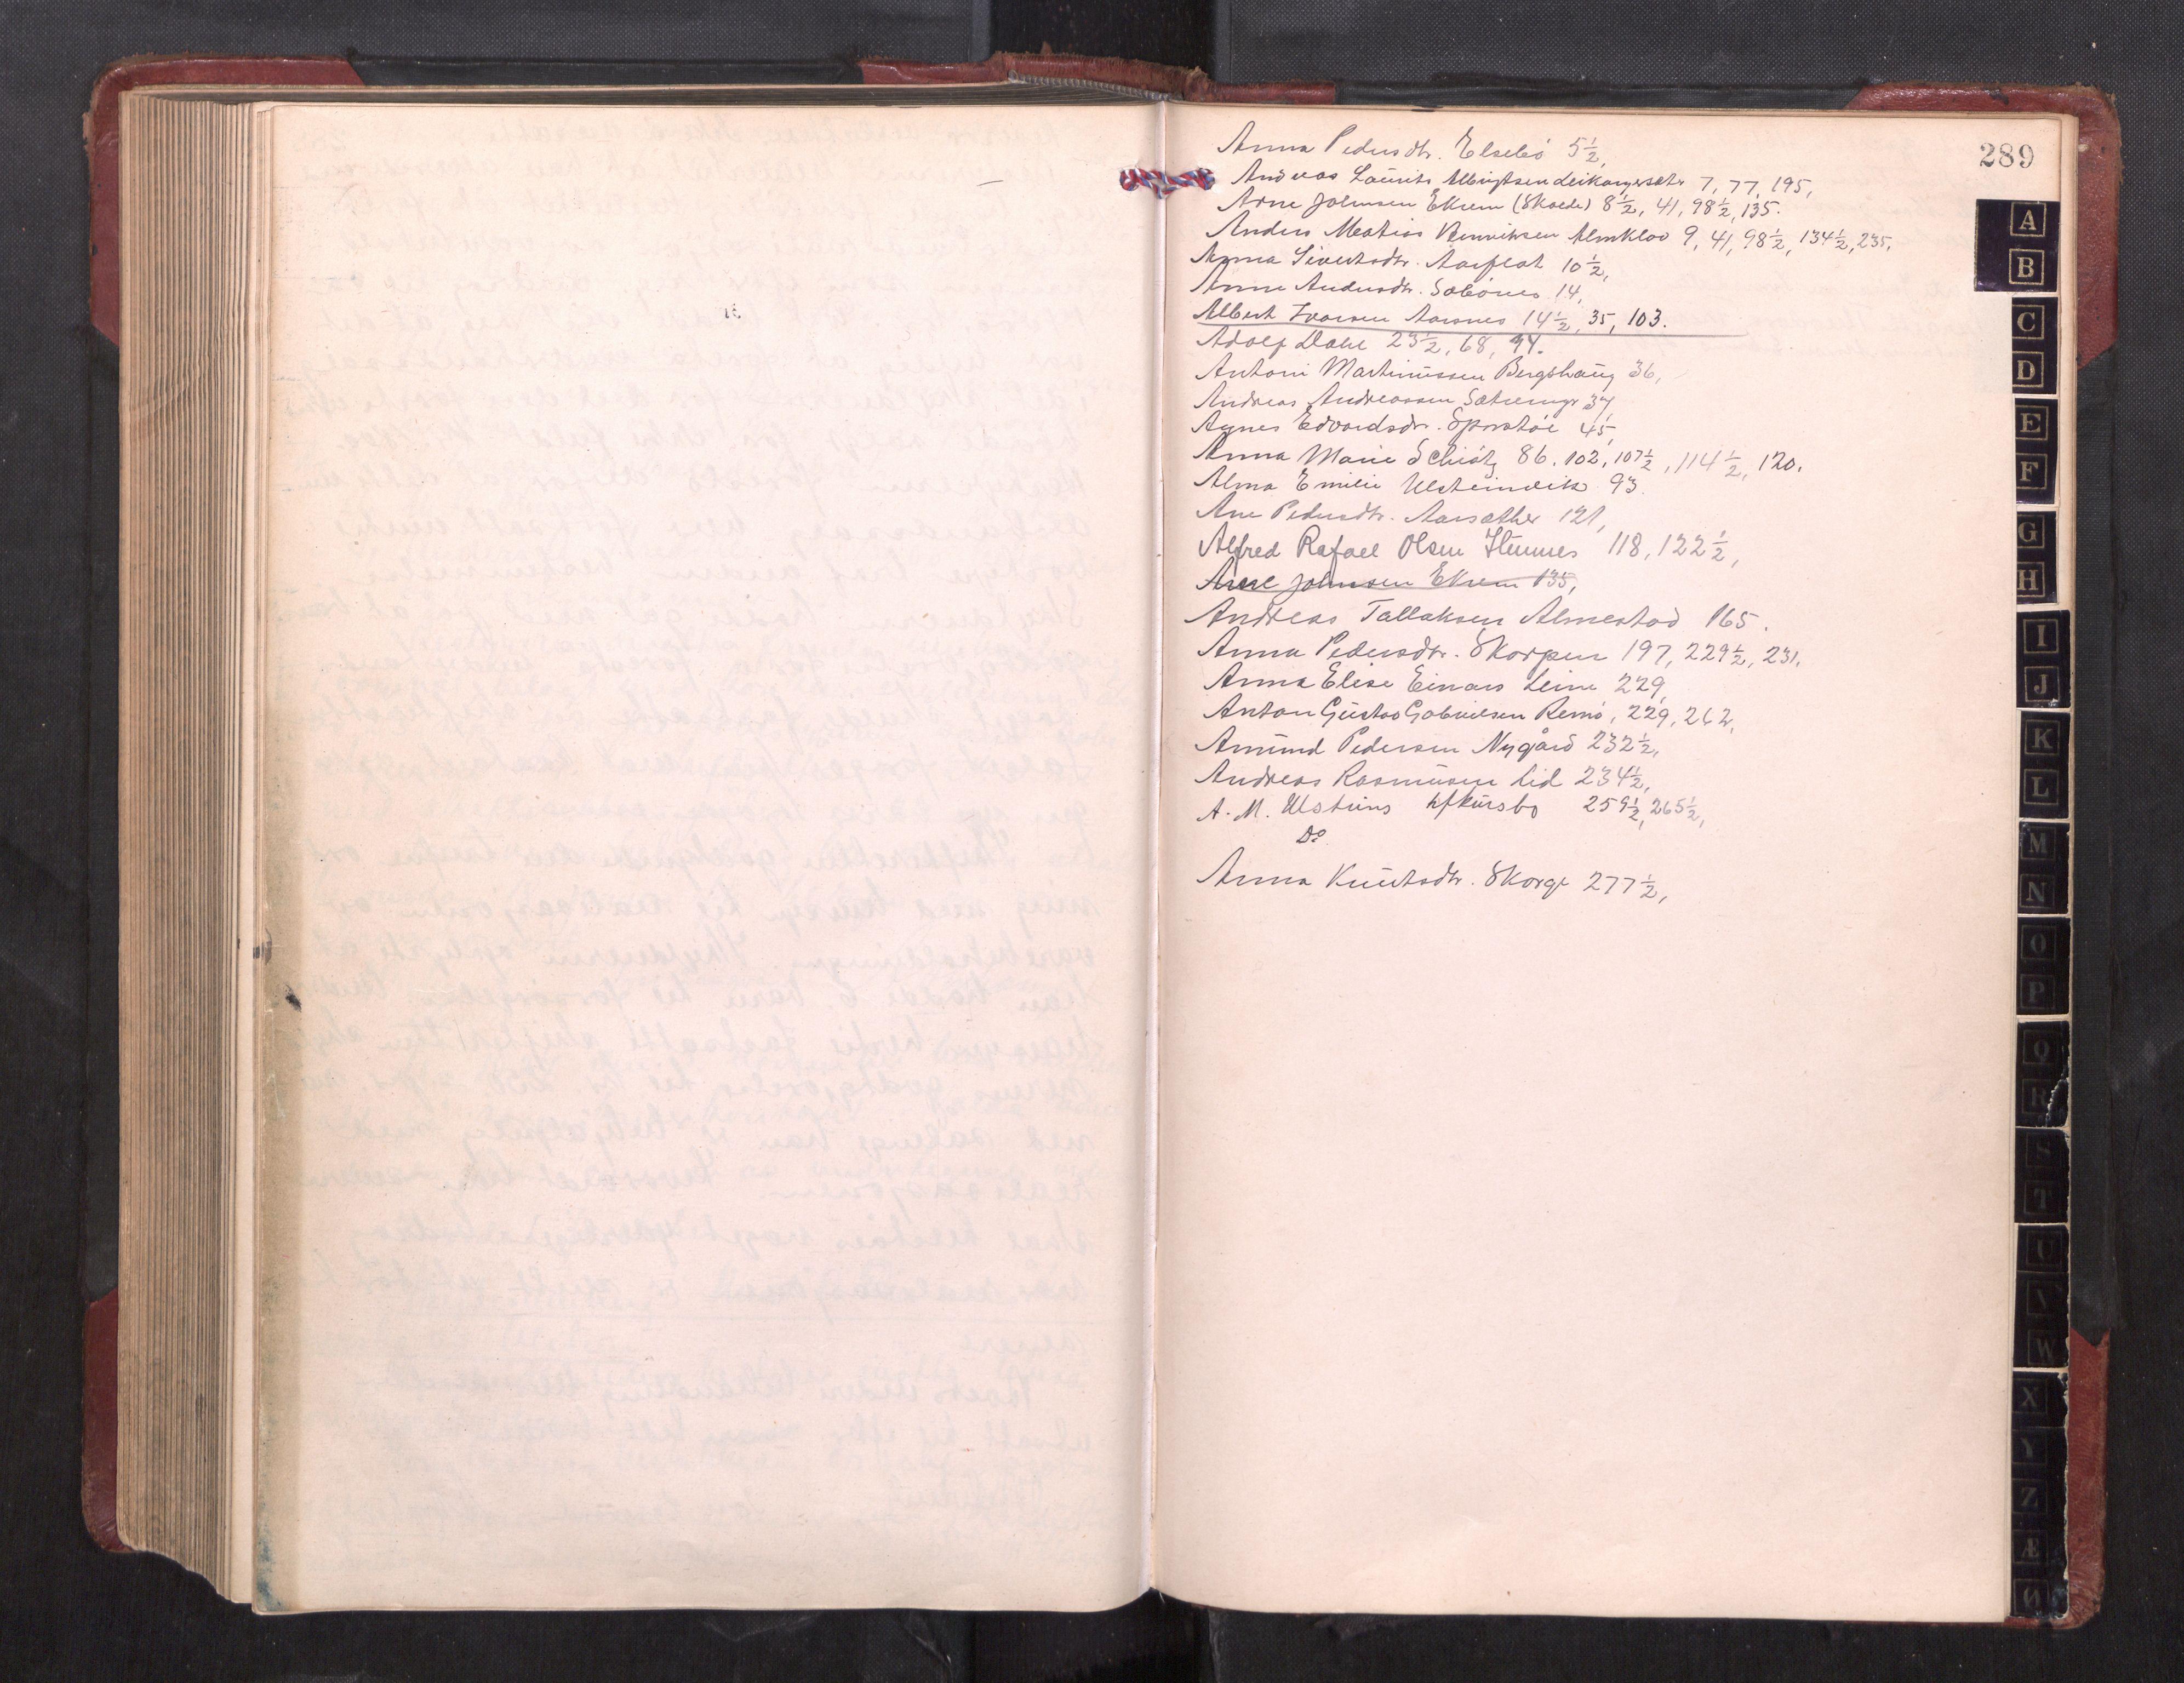 289
Anna Pedersdtr. Elsebö 5½,
Andreas Laurits Albrigtsen Leikangersætr 7, 77, 195,
Arne Johnsen Ekrem (Skaede) 8½, 41, 98½, 135.
Anders Matias Henriksen Almklov 9, 41, 98½, 134½, 235,
Anna Sivertsdtr. Aarflot 10½,
Anne Andersdtr. 14,
Albert Ivarsen Aarsnes 14½, 35, 103.
Adolf Dahl 23½, 68, 94.
Antoni Martinussen Bergshaug 36,
Andreas Andreassen 37,
Agnes Edvardsdtr. 45,
Anna Marie Schiötz 86, 102, 107½, 114½, 120.
Alma Emilie Ulsteinvik 93.
Ane Pedersdtr. Aarsæther 121,
Alfred Rafael Olsen 118, 122½,
Arne Johnsen Ekrem 135,
Andreas Tallaksen Almestad 165.
Anna Pedersdtr. Skorpen 197, 229½, 231,
Anna Elise Einars Leine 229,
Anton Gustav Gabrielsen Remö, 229, 262,
Amund Pedersen Nygård 232½,
Andreas Rasmussen Lid 234½,
A. M. Ulsteins kfkursbo 259½, 265½,
Do
Anna Knutsdtr. Skorge 277½,
A
B
C
D
E
F
G
H
I
J
K
L
M
N
O
P
Q
R
S
T
U
V
W
X
Y
Z
Æ